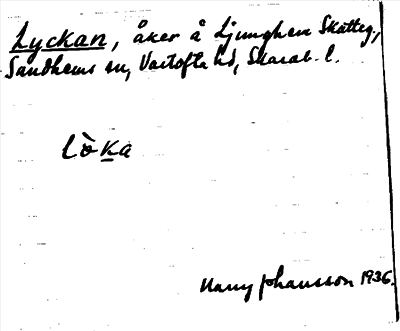 Lyckan, åker å Ljunghem Skatteg.,
Sandhems sn, Vartofta hd, Skarab. l.
Lὸḵa
Harry Johansson 1936.